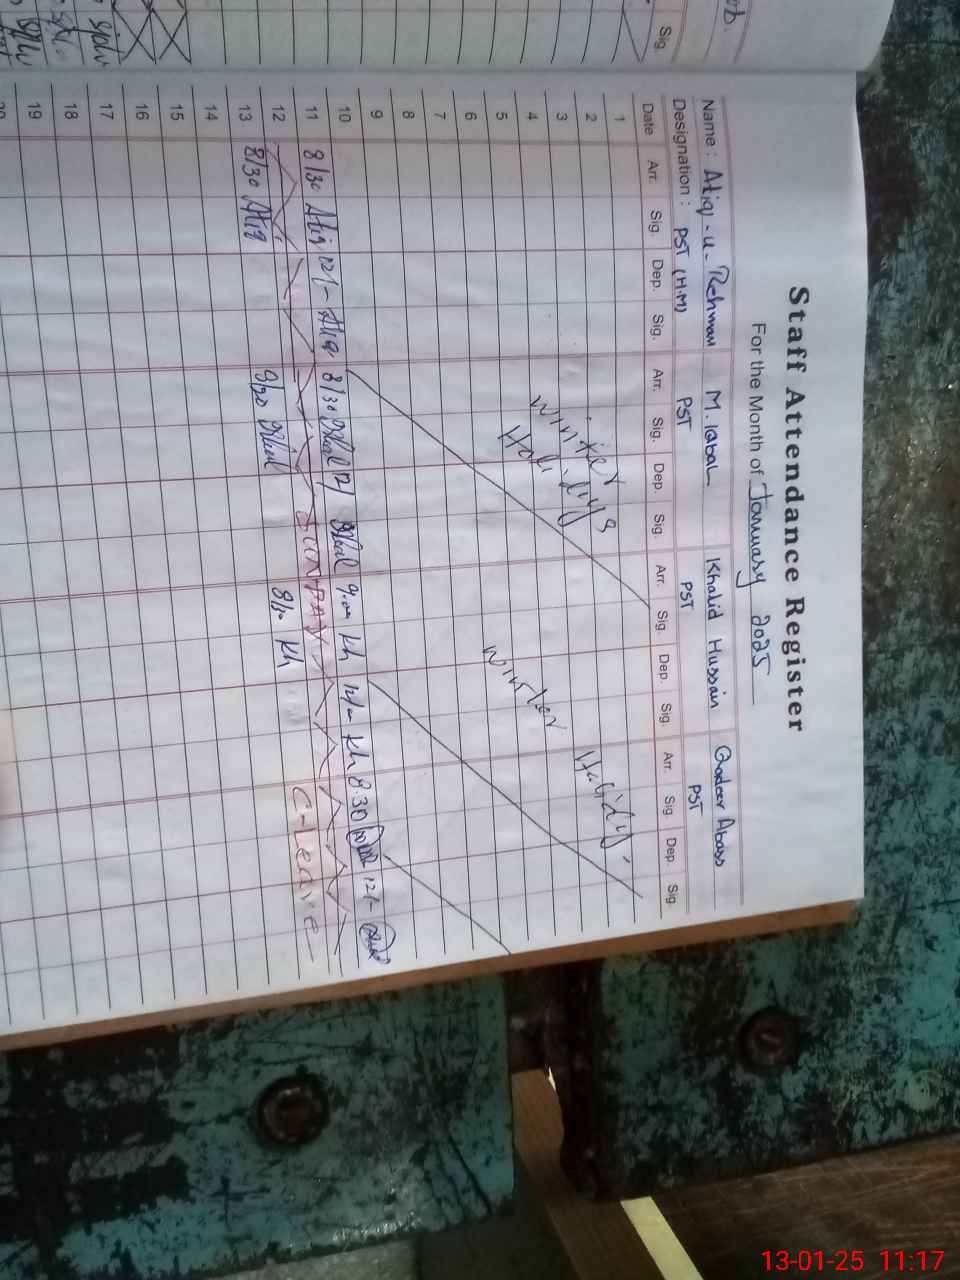 Staff Attendance Register
For the Month of January 2025
Name : Atiq-u-Rehman M. Iqbal Khalid Hussain Qadeer Abass
Designation : PST (H.M) PST PST PST
Date Arr. Sig. Dep. Sig. Arr. Sig. Dep. Sig. Arr. Sig. Dep. Sig. Arr. Sig. Dep. Sig
1
2
3
4
5
6
7
8
9
Winter
Holi
diys
Winter Holidys
10
11 8/30 Atiq 12/- Atiq 8/30 12/ 9.00 Kh 12/- Kh 8.30 12/-
12 SUNDAY
13 8/30 Atiq 8/30 8/30 Kh C-Leave
14
15
16
17
18
19
20
Sig.
13-01-25 11:17